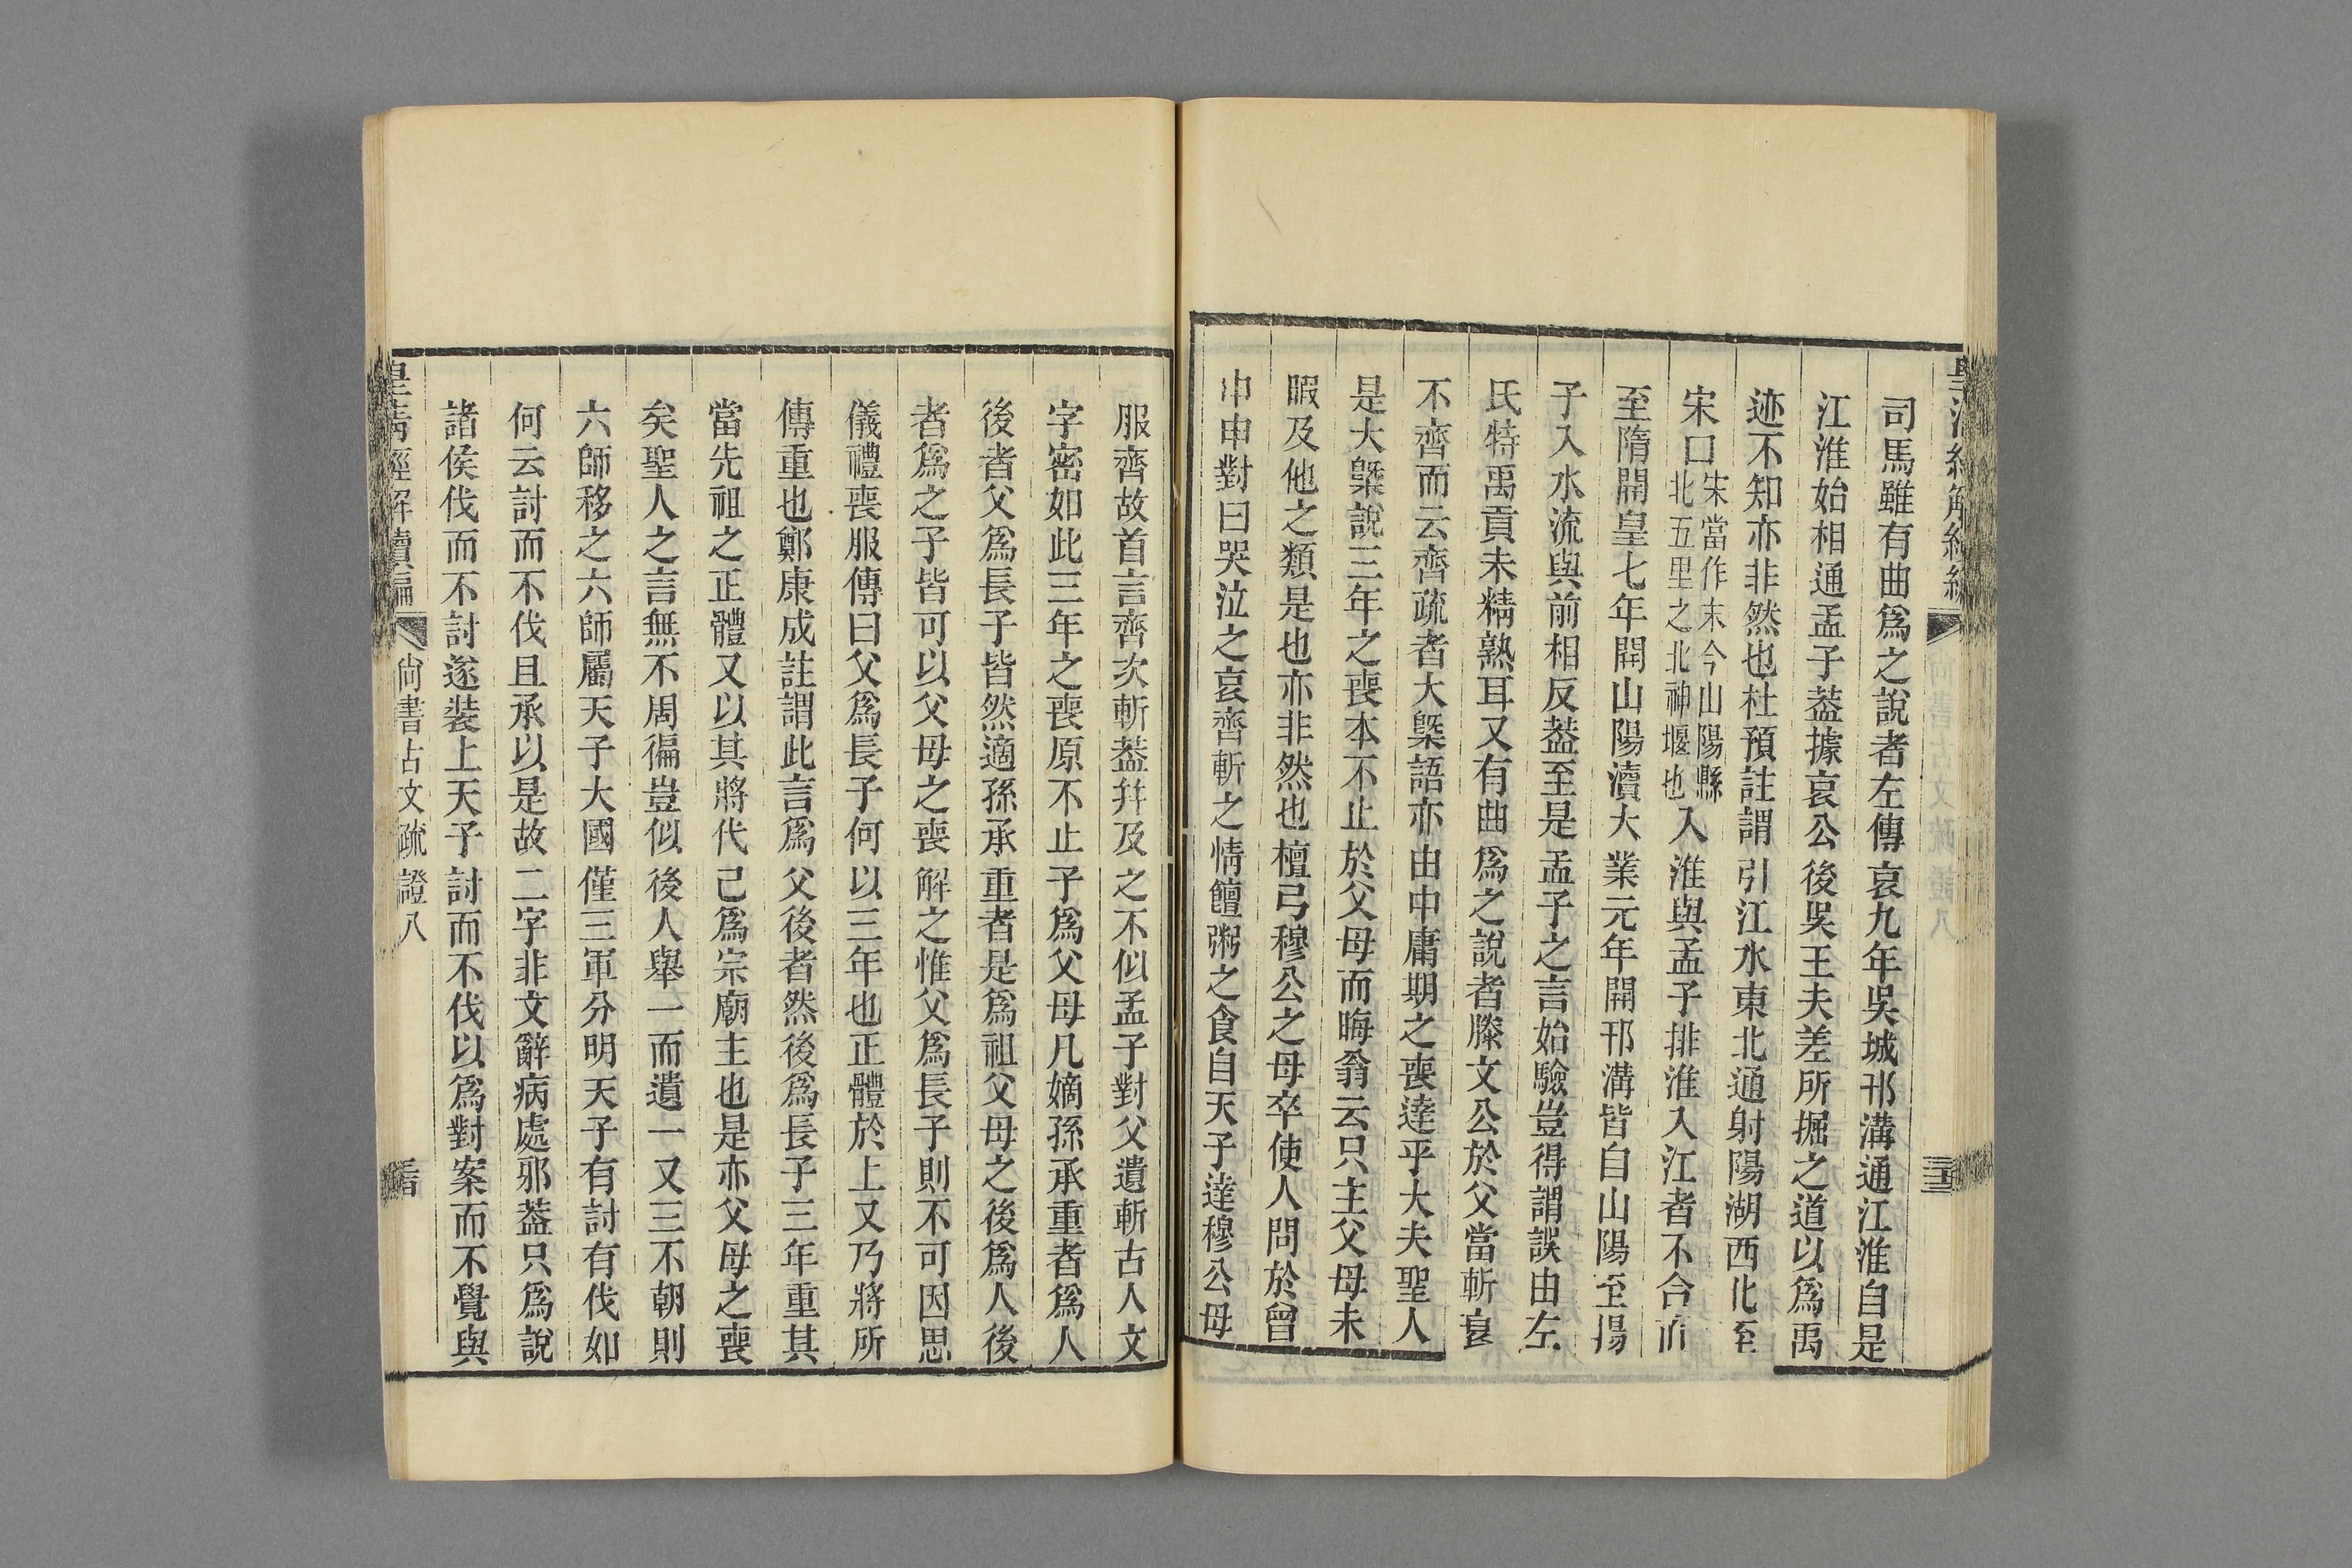 司馬雖有曲爲之說者左傳哀九年吳城邗溝通江淮自是
江淮始相通孟子葢據哀公後吳王夫差所掘之道以爲禹
迹不知亦非然也杜預註謂引江水東北通射陽湖西北至
宋口宋當作末今山陽縣北五里之北神堰也入淮與孟子排淮入江者不合而
至隋開皇七年開山陽瀆大業元年開邗溝皆自山陽至揚
子入水流與前相反葢至是孟子之言始驗豈得謂誤由左
氏特禹貢未精熟耳又有曲爲之說者滕文公於父當斬衰
不齊而云齊疏者大槩語亦由中庸期之喪達乎大夫聖人
是大槩說三年之喪本不止於父母而晦翁云只主父母未
暇及他之類是也亦非然也檀弓穆公之母卒使人問於曾
申申對曰哭泣之哀齊斬之情饘粥之食自天子達穆公母
服齊故首言齊次斬葢幷及之不似孟子對父遺斬古人文
字密如此三年之喪原不止子爲父母凡嫡孫承重者爲人
後者父爲長子皆然適孫承重者是爲祖父母之後爲人後
者爲之子皆可以父母之喪解之惟父爲長子則不可因思
儀禮喪服傳曰父爲長子何以三年也正體於上又乃將所
傳重也鄭康成註謂此言爲父後者然後爲長子三年重其
當先祖之正體又以其將代己爲宗廟主也是亦父母之喪
矣聖人之言無不周徧豈似後人舉一而遺一又三不朝則
六師移之六師屬天子大國僅三軍分明天子有討有伐如
何云討而不伐且承以是故二字非文辭病處邪葢只爲說
諸侯伐而不討遂裝上天子討而不伐以爲對案而不覺與
皇清經解續編
尙書古文疏證八